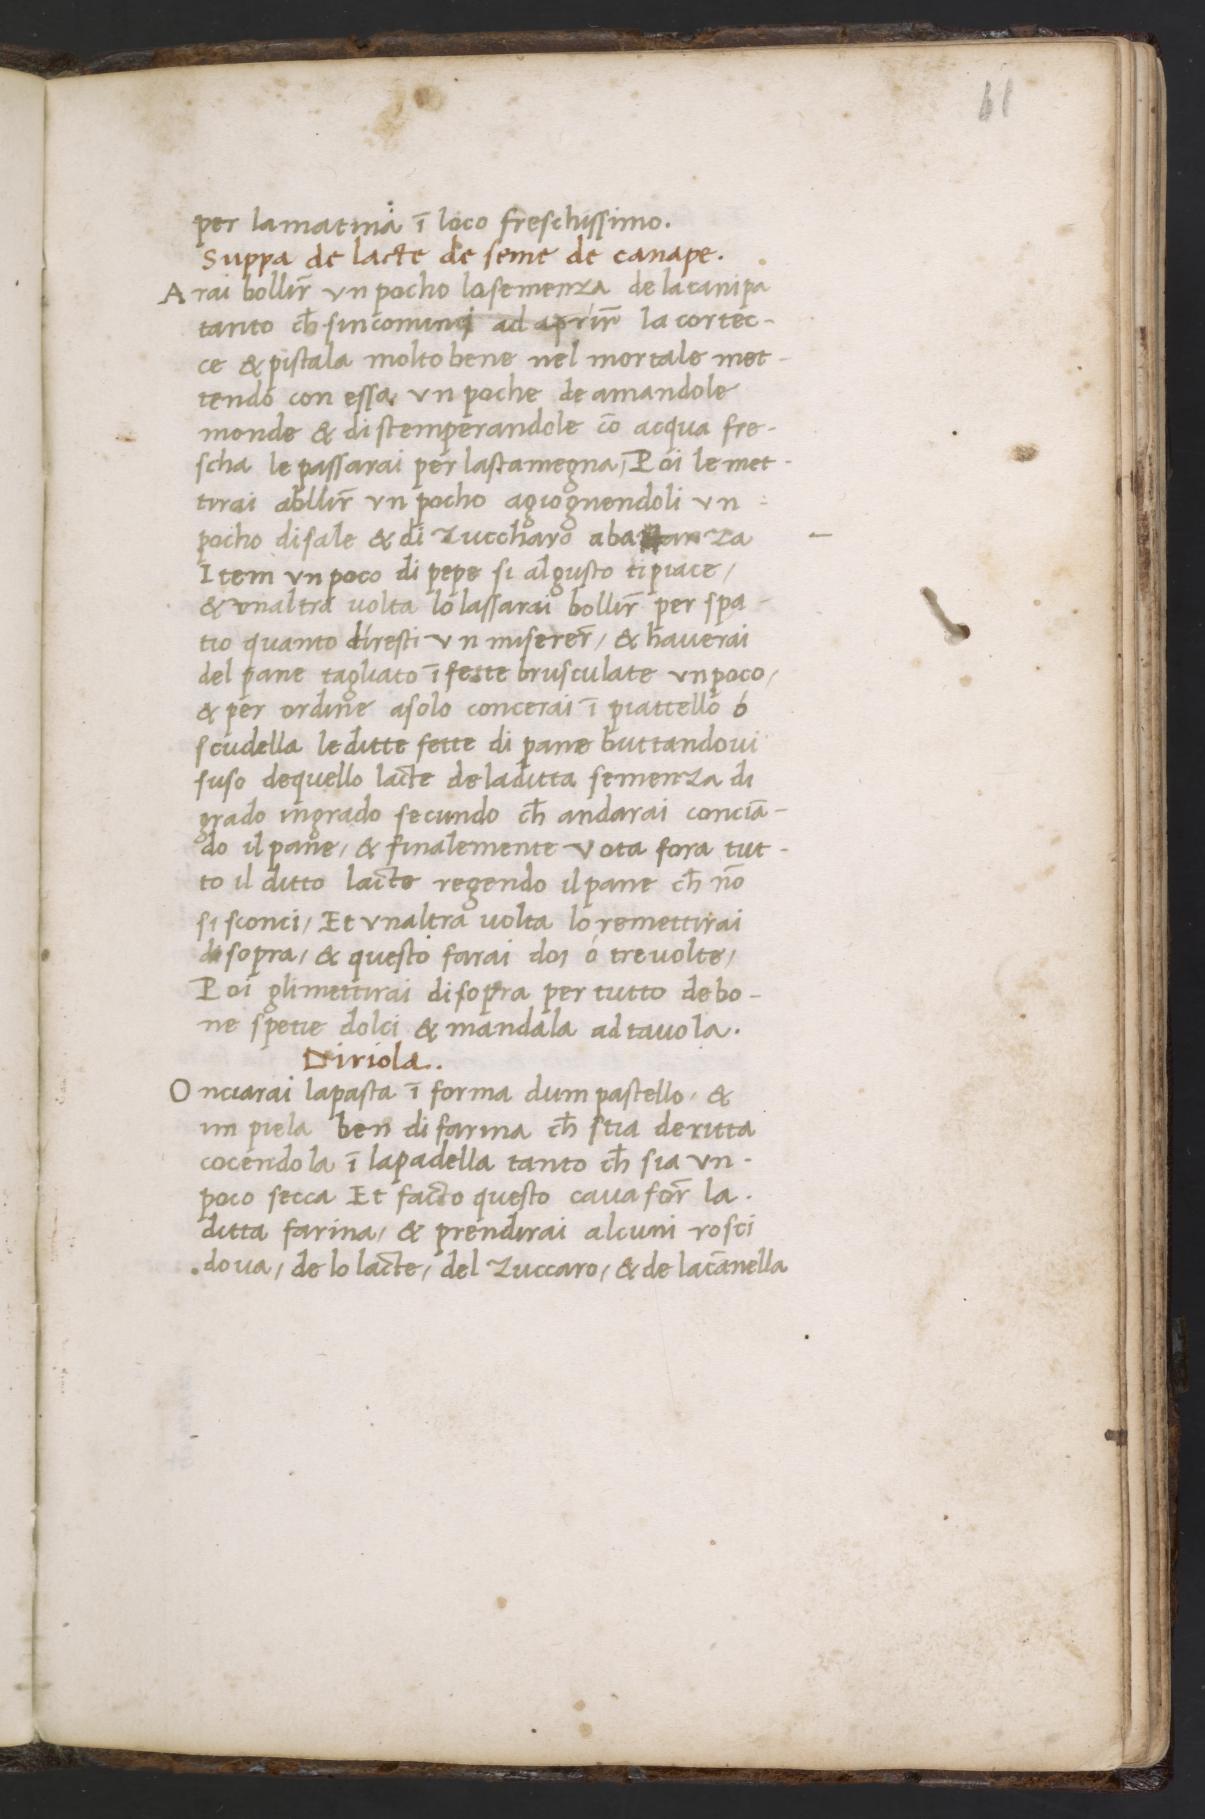 61
per lamatina ī loco freschissimo.
Suppa de lacte de seme de canape.
Arai bollir̄ vn pocho losemenza de lacanipa
tanto ch̄ sincominci ad aprir̄ la cortec-
ce & pistala molto bene nel mortale met-
tendo con essa vn poche de amandole
monde & distemperandole cō acqua fre-
scha le passarai per lastamegna, Poi le met-
tirai abllir̄ vn pocho agiognendoli vn
pocho disale & di Zuccharo abastanza
Item vn poco di pepe si algusto tipiace,
& vnaltra uolta lo lassarai bollir̄ per spa-
tio quanto diresti vn miserer̄, & hauerai
del pane tagliato ī fette brusculate vnpoco,
& per ordine asolo concerai ī piattello ó
scudella leditte fette di pane buttandoui
suso dequello lacte deladitta semenza di
grado ingrado secundo ch̄ andarai conciā-
do il pane, & finalemente vota fora tut-
to il ditto lacte regendo ilpane ch̄ nō
si sconci, Et vnaltra uolta lo remettirai
disopra, & questo farai doi ó treuolte,
Poi glimettirai disopra per tutto debo-
ne spetie dolci & mandala ad tauola.
Diriola.
Onciarai lapasta ī forma dum pastello, &
im piela ben di farina ch̄ stia deritta
cocendola ī lapadella tanto ch̄ sia vn
poco secca Et facto questo caua for̄ la
ditta farina, & prendirai alcuni rosci
doua, de lo lacte, del Zuccaro, & de lacānella